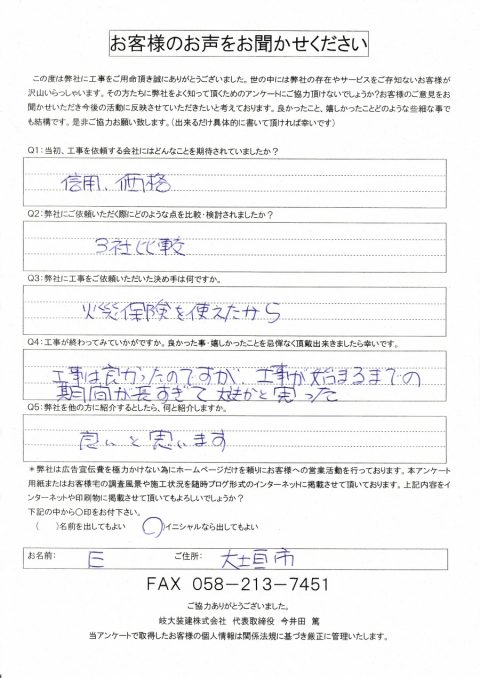 お客様のお声をお聞かせください
この度は弊社に工事をご用命頂き誠にありがとうございました。世の中には弊社の存在やサービスをご存知ないお客様が
沢山いらっしゃいます。その方たちに弊社をよく知って頂くためのアンケートにご協力頂けないでしょうか?お客様のご意見をお
聞かせいただき今後の活動に反映させていただきたいと考えております。良かったこと、嬉しかったことどのような些細な事で
も結構です。是非ご協力お願い致します。(出来るだけ具体的に書いて頂ければ幸いです)
Q1:当初、工事を依頼する会社にはどんなことを期待されていましたか?
信用、価格
Q2:弊社にご依頼いただく際にどのような点を比較・検討されましたか?
3社比較
Q3:弊社に工事をご依頼いただいた決め手は何ですか。
火災保険を使えたから
Q4:工事が終わってみていかがですか。良かった事・嬉しかったことを忌憚なく頂戴出来きましたら幸いです。
工事は良かったのですが、工事が始まるまでの
期間が長すぎて 大丈夫かと思った
Q5:弊社を他の方に紹介するとしたら、何と紹介しますか。
良いと思います
*弊社は広告宣伝費を極力かけない為にホームページだけを頼りにお客様への営業活動を行っております。本アンケート
用紙またはお客様宅の調査風景や施工状況を随時ブログ形式のインターネットに掲載させて頂いております。上記内容をイ
ンターネットや印刷物に掲載させて頂いてもよろしいでしょうか?
下記の中から〇印をお付下さい。
( )名前を出してもよい (〇)イニシャルなら出してもよい
お名前: E ご住所: 大垣市
FAX 058-213-7451
ご協力ありがとうございました。
岐大装建株式会社 代表取締役 今井田 篤
当アンケートで取得したお客様の個人情報は関係法規に基づき厳正に管理いたします。